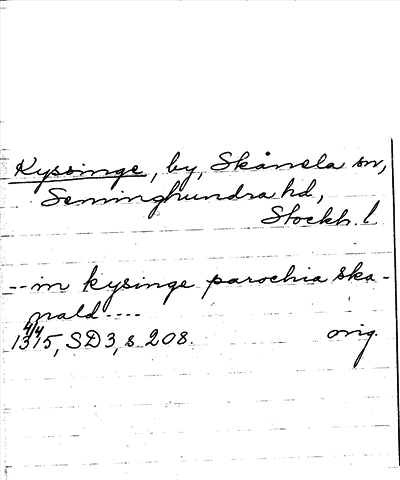 Kyssinge, by, Skånela sn,
Seminghundra hd,
Stockh. l
-- in kysinge parochia ska-
nald ----
4/4
1315, SD3, s. 208. orig.